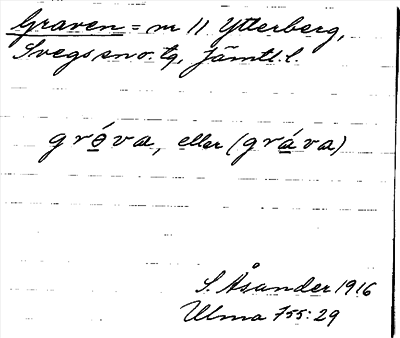 Graven = nr 11 Ytterberg,
Svegs sn o. tg, Jämtl. l.
grǿva, eller (gráva)
S. Åsander 1916
Ulma 755:29